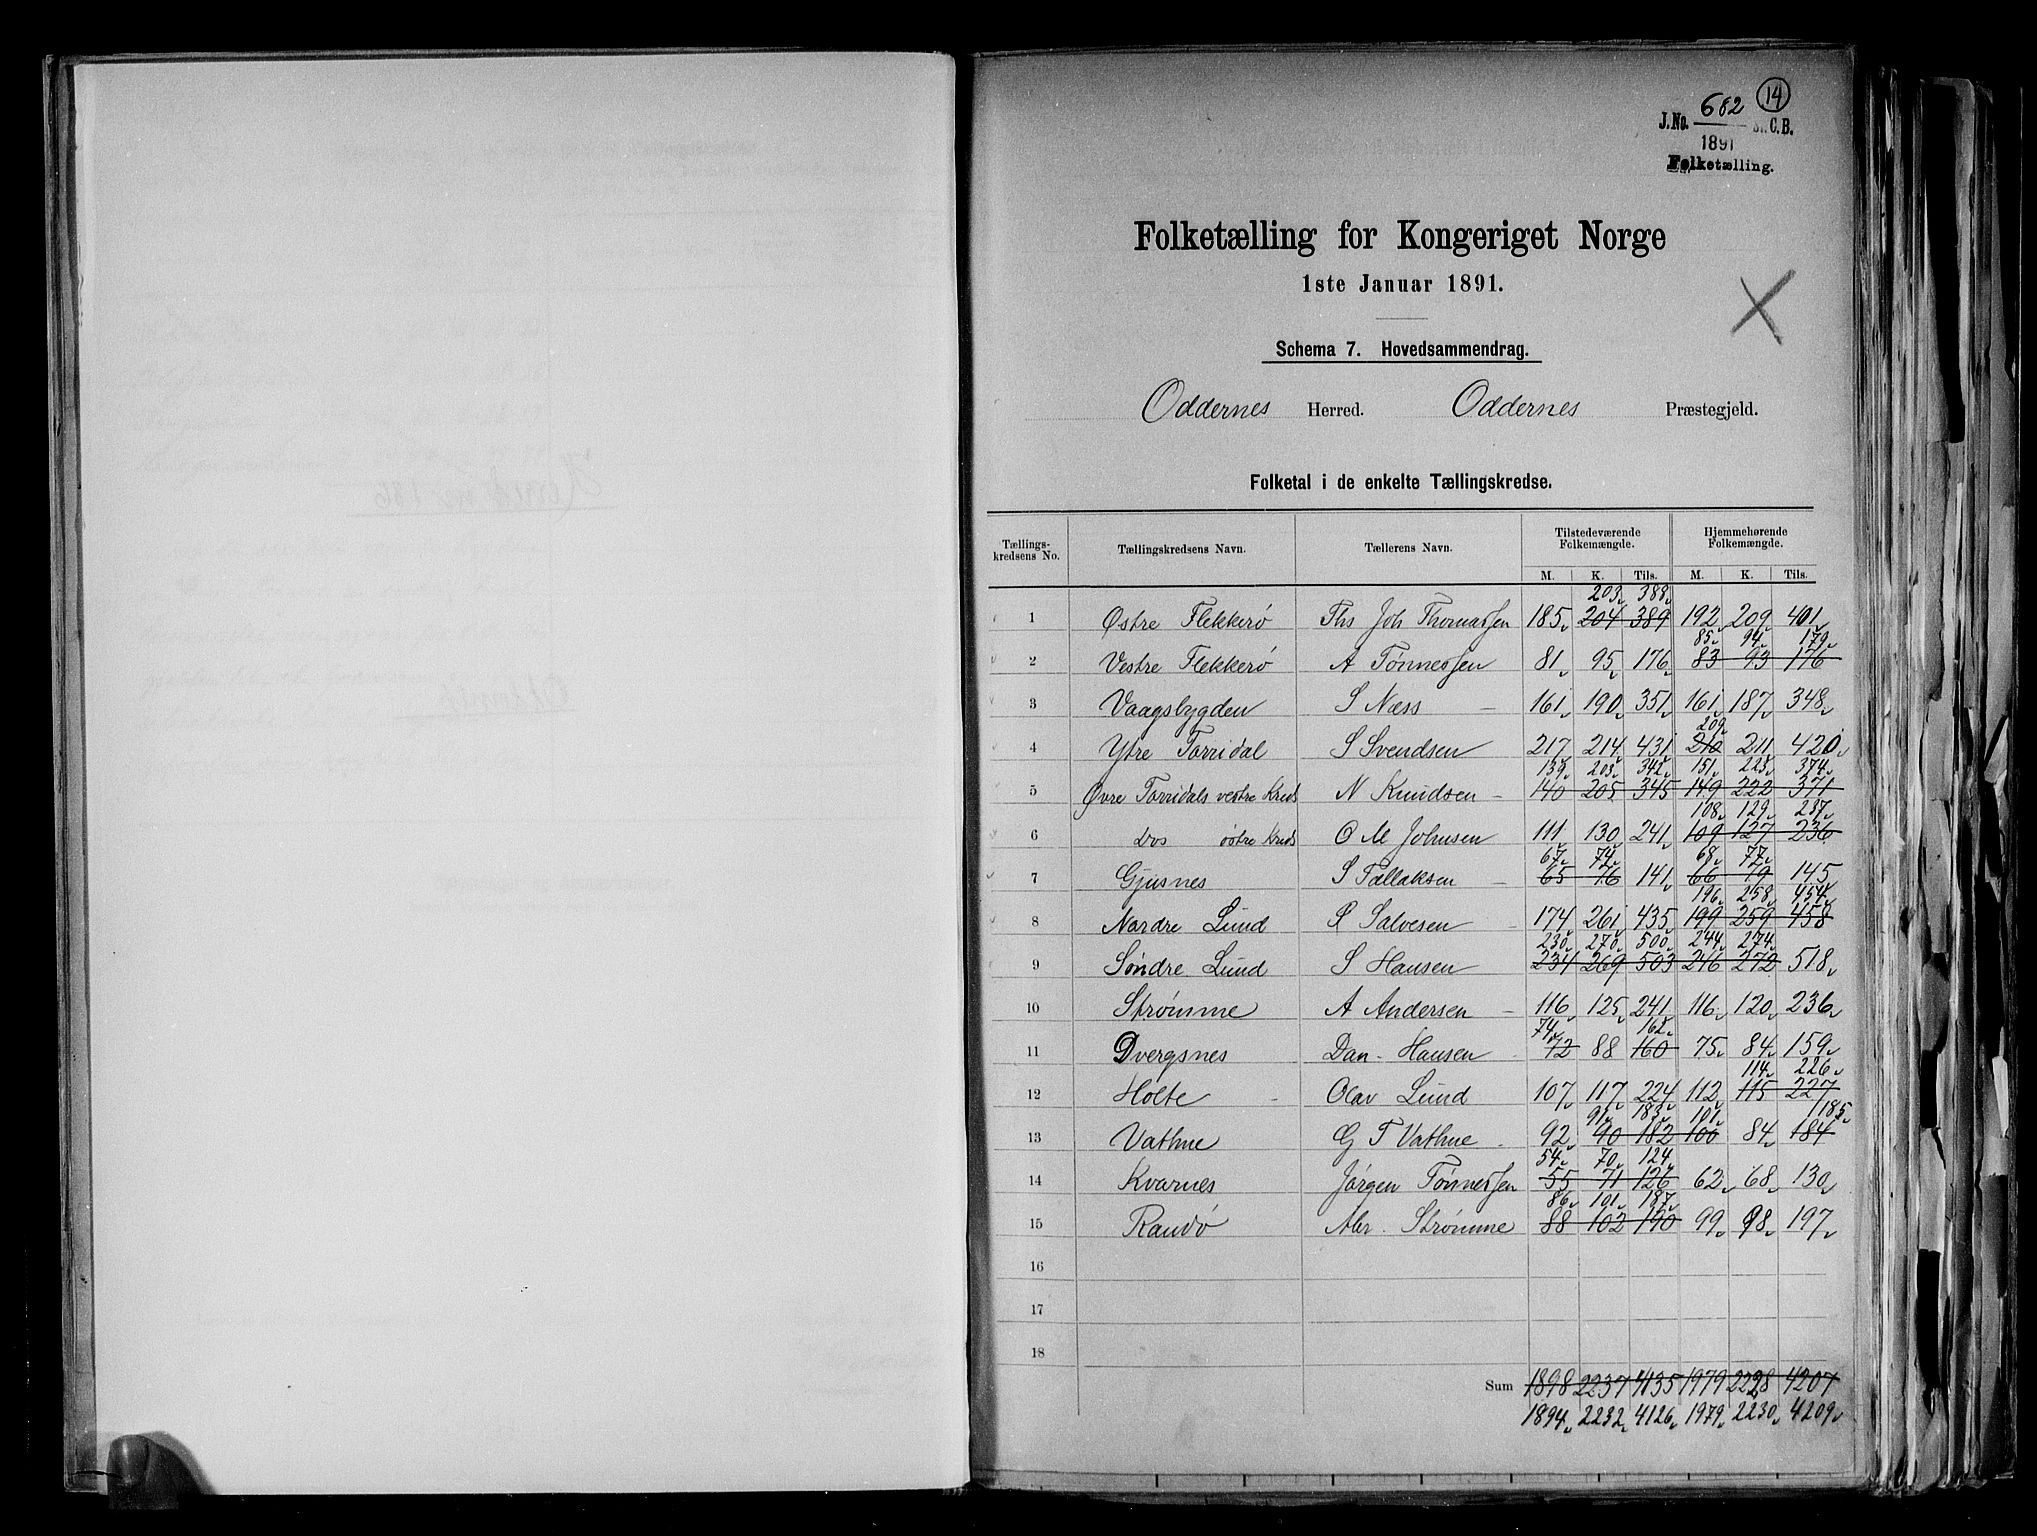 14
J.No. 682 St. C.B.
1891
Folketælling.
Folketælling for Kongeriget Norge
1ste Januar 1891.
Schema 7. Hovedsammendrag.
Oddernes Herred. Oddernes Præstegjeld.
Folketal i de enkelte Tællingskredse.
Tællings- kredsens No. Tællingskredsens Navn. Tællerens Navn. Tilstedeværende Folkemængde. Hjemmehørende Folkemængde.
M. K. Tils. M. K. Tils.
203 388
1 Østre Flekkerö Ths Joh Thomassen 185 204 389 192 209 401
85 94 179
2 Vestre Flekkerö A Tönnessen 81 95 176 83 93 176
3 Vaagsbygden S Næss 161 190 351 161 187 348
209
4 Ytre Torridal S Svendsen 217 214 431 210 211 420
139 203 342 151 223 374
5 Øvre Torridals vestre Kreds N Knudsen 140 205 345 149 222 371
108 129 237
6 Dos östre Kreds O M Johnsen 111 130 241 109 127 236
67 74 68 77
7 Gjusnes S Tallaksen 65 76 141 66 79 145
196 258 454
8 Nordre Lund Salvesen 174 261 435 199 259 458
230 270 500 244 274
9 Söndre Lund S Hansen 234 269 503 246 272 518
10 Strömme A Andersen 116 125 241 116 120 236
74 162
11 Dvergsnes Dan. Hansen 72 88 160 75 84 159
114 226
12 Holte Olav Lund 107 117 224 112 115 227
91 183 101 185
13 Vathne G T Vathne 92 90 182 100 84 184
54 70 124
14 Kvarnes Jörgen Tönnessen 55 71 126 62 68 130
86 101 187
15 Randö Strömme 88 102 190 99 98 197
16
17
18
Sum 1898 2237 4135 1979 2228 4207
1894 2232 4126 1979 2230 4209